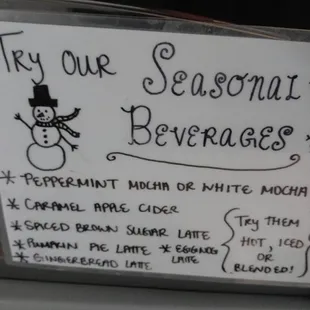 TRY OUR SEASONAL
BEVERAGES *
* PEPPERMINT MOCHA OR WHITE MOCHA
* CARAMEL APPLE CIDER
* SPICED BROWN SUGAR LATTE
* PUMPKIN PIE LATTE * EGGNOG LATTE
* GINGERBREAD LATTE
TRY THEM
HOT, ICED
OR
BLENDED!